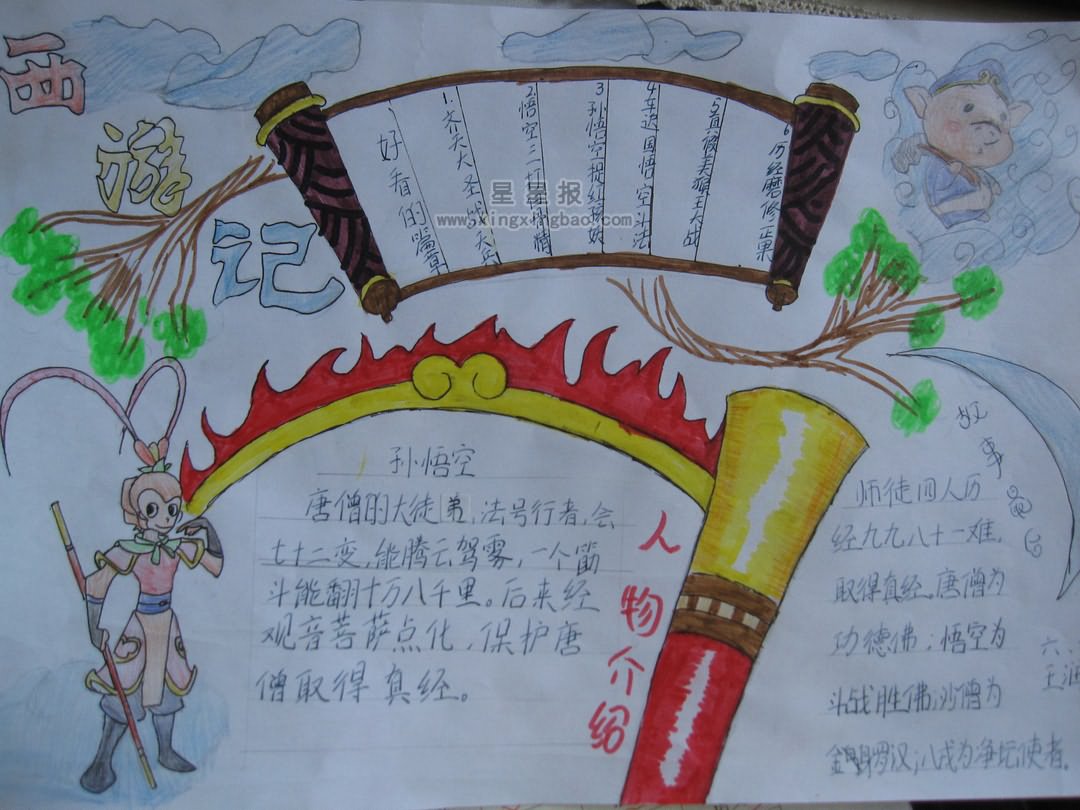 西游记
好看的篇章
1.齐天大圣战天兵
2悟空三打白骨精
3孙悟空捉红孩妖
4车迟国悟空斗法
5真假美猴王大战
6历经磨修正果
星星报
www.xingxingbao.com
孙悟空
唐僧的大徒弟,法号行者,会
七十二变,能腾云驾雾,一个筋
斗能翻十万八千里。后来经
观音菩萨点化,保护唐
僧取得真经。
人物介绍
故事
师徒四人历
经九九八十一难,
取得真经。唐僧为
功德佛;悟空为
斗战胜佛;沙僧为
金身罗汉;八戒为净坛使者。
六、
王